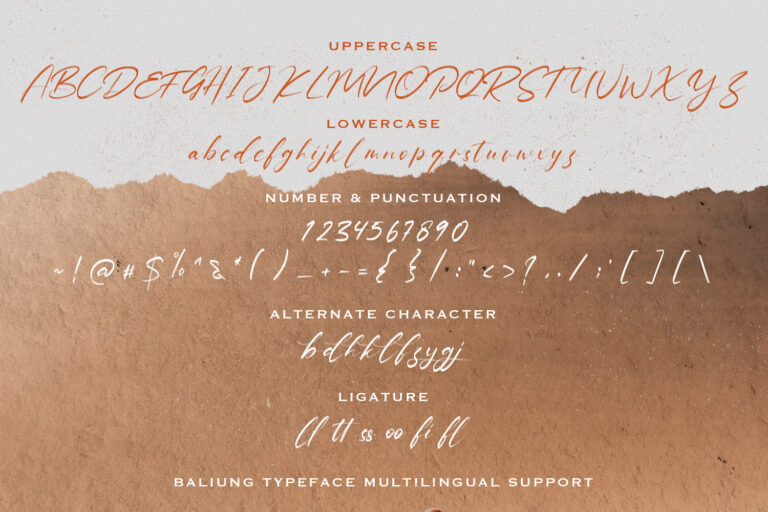 UPPERCASE
ABCDEFGHIJKLMNOPQRSTUVWXYZ
LOWERCASE
abcdefghijklmnopqrstuvwxyz
NUMBER & PUNCTUATION
1234567890
~!@#$%^&*()_+-={}|:"<>?,./;'[][\
ALTERNATE CHARACTER
bdhklfzygj
LIGATURE
ll tt ss oo fi fl
BALIUNG TYPEFACE MULTILINGUAL SUPPORT